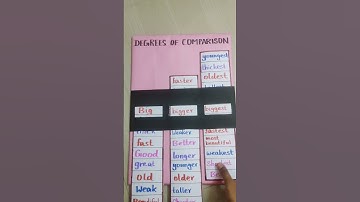 DEGREES OF COMPARISON
youngest
thickest
faster
oldest
Big
bigger
biggest
weaker
fastest
fast
Better
most beautiful
Good
longer
weakest
great
younger
Old
older
Weak
taller